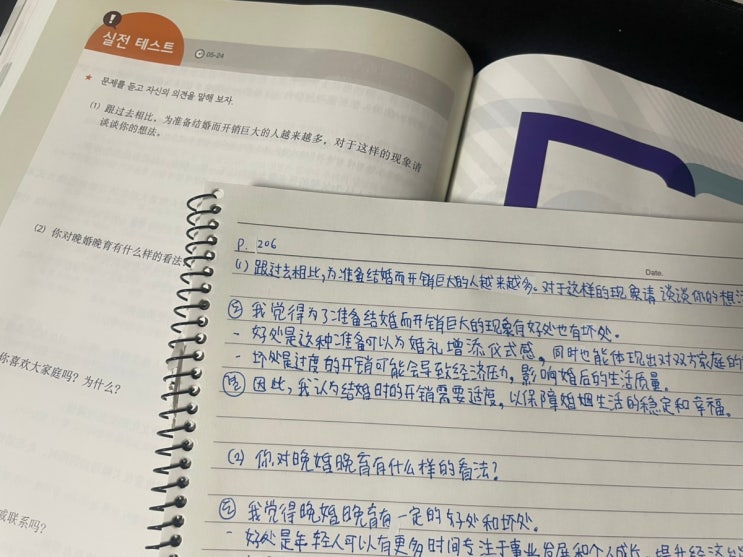 !
실전 테스트
05-24
★ 문제를 듣고 자신의 의견을 말해 보자.
(1) 跟过去相比，为准备结婚而开销巨大的人越来越多，对于这样的现象请
谈谈你的想法。
(2) 你对晚婚晚育有什么样的看法
你喜欢大家庭吗？为什么？
联系吗？
P. 206
Date.
(1) 跟过去相比，为准备结婚而开销巨大的人越来越多。对于这样的现象请谈谈你的想
我觉得为了准备结婚而开销巨大的现象有好处也有坏处。
- 好处是这种准备可以为婚礼增添仪式感，同时也能体现出对双方家庭的
- 坏处是过度的开销可能会导致经济压力，影响婚后的生活质量。
因此，我认为结婚时的开销需要适度，以保障婚姻生活的稳定和幸福。
(2) 你对晚婚晚育有什么样的看法？
我觉得晚婚晚育有一定的好处和坏处。
- 好处是年轻人可以有更多时间专注于事业发展和个人成长，提升经济